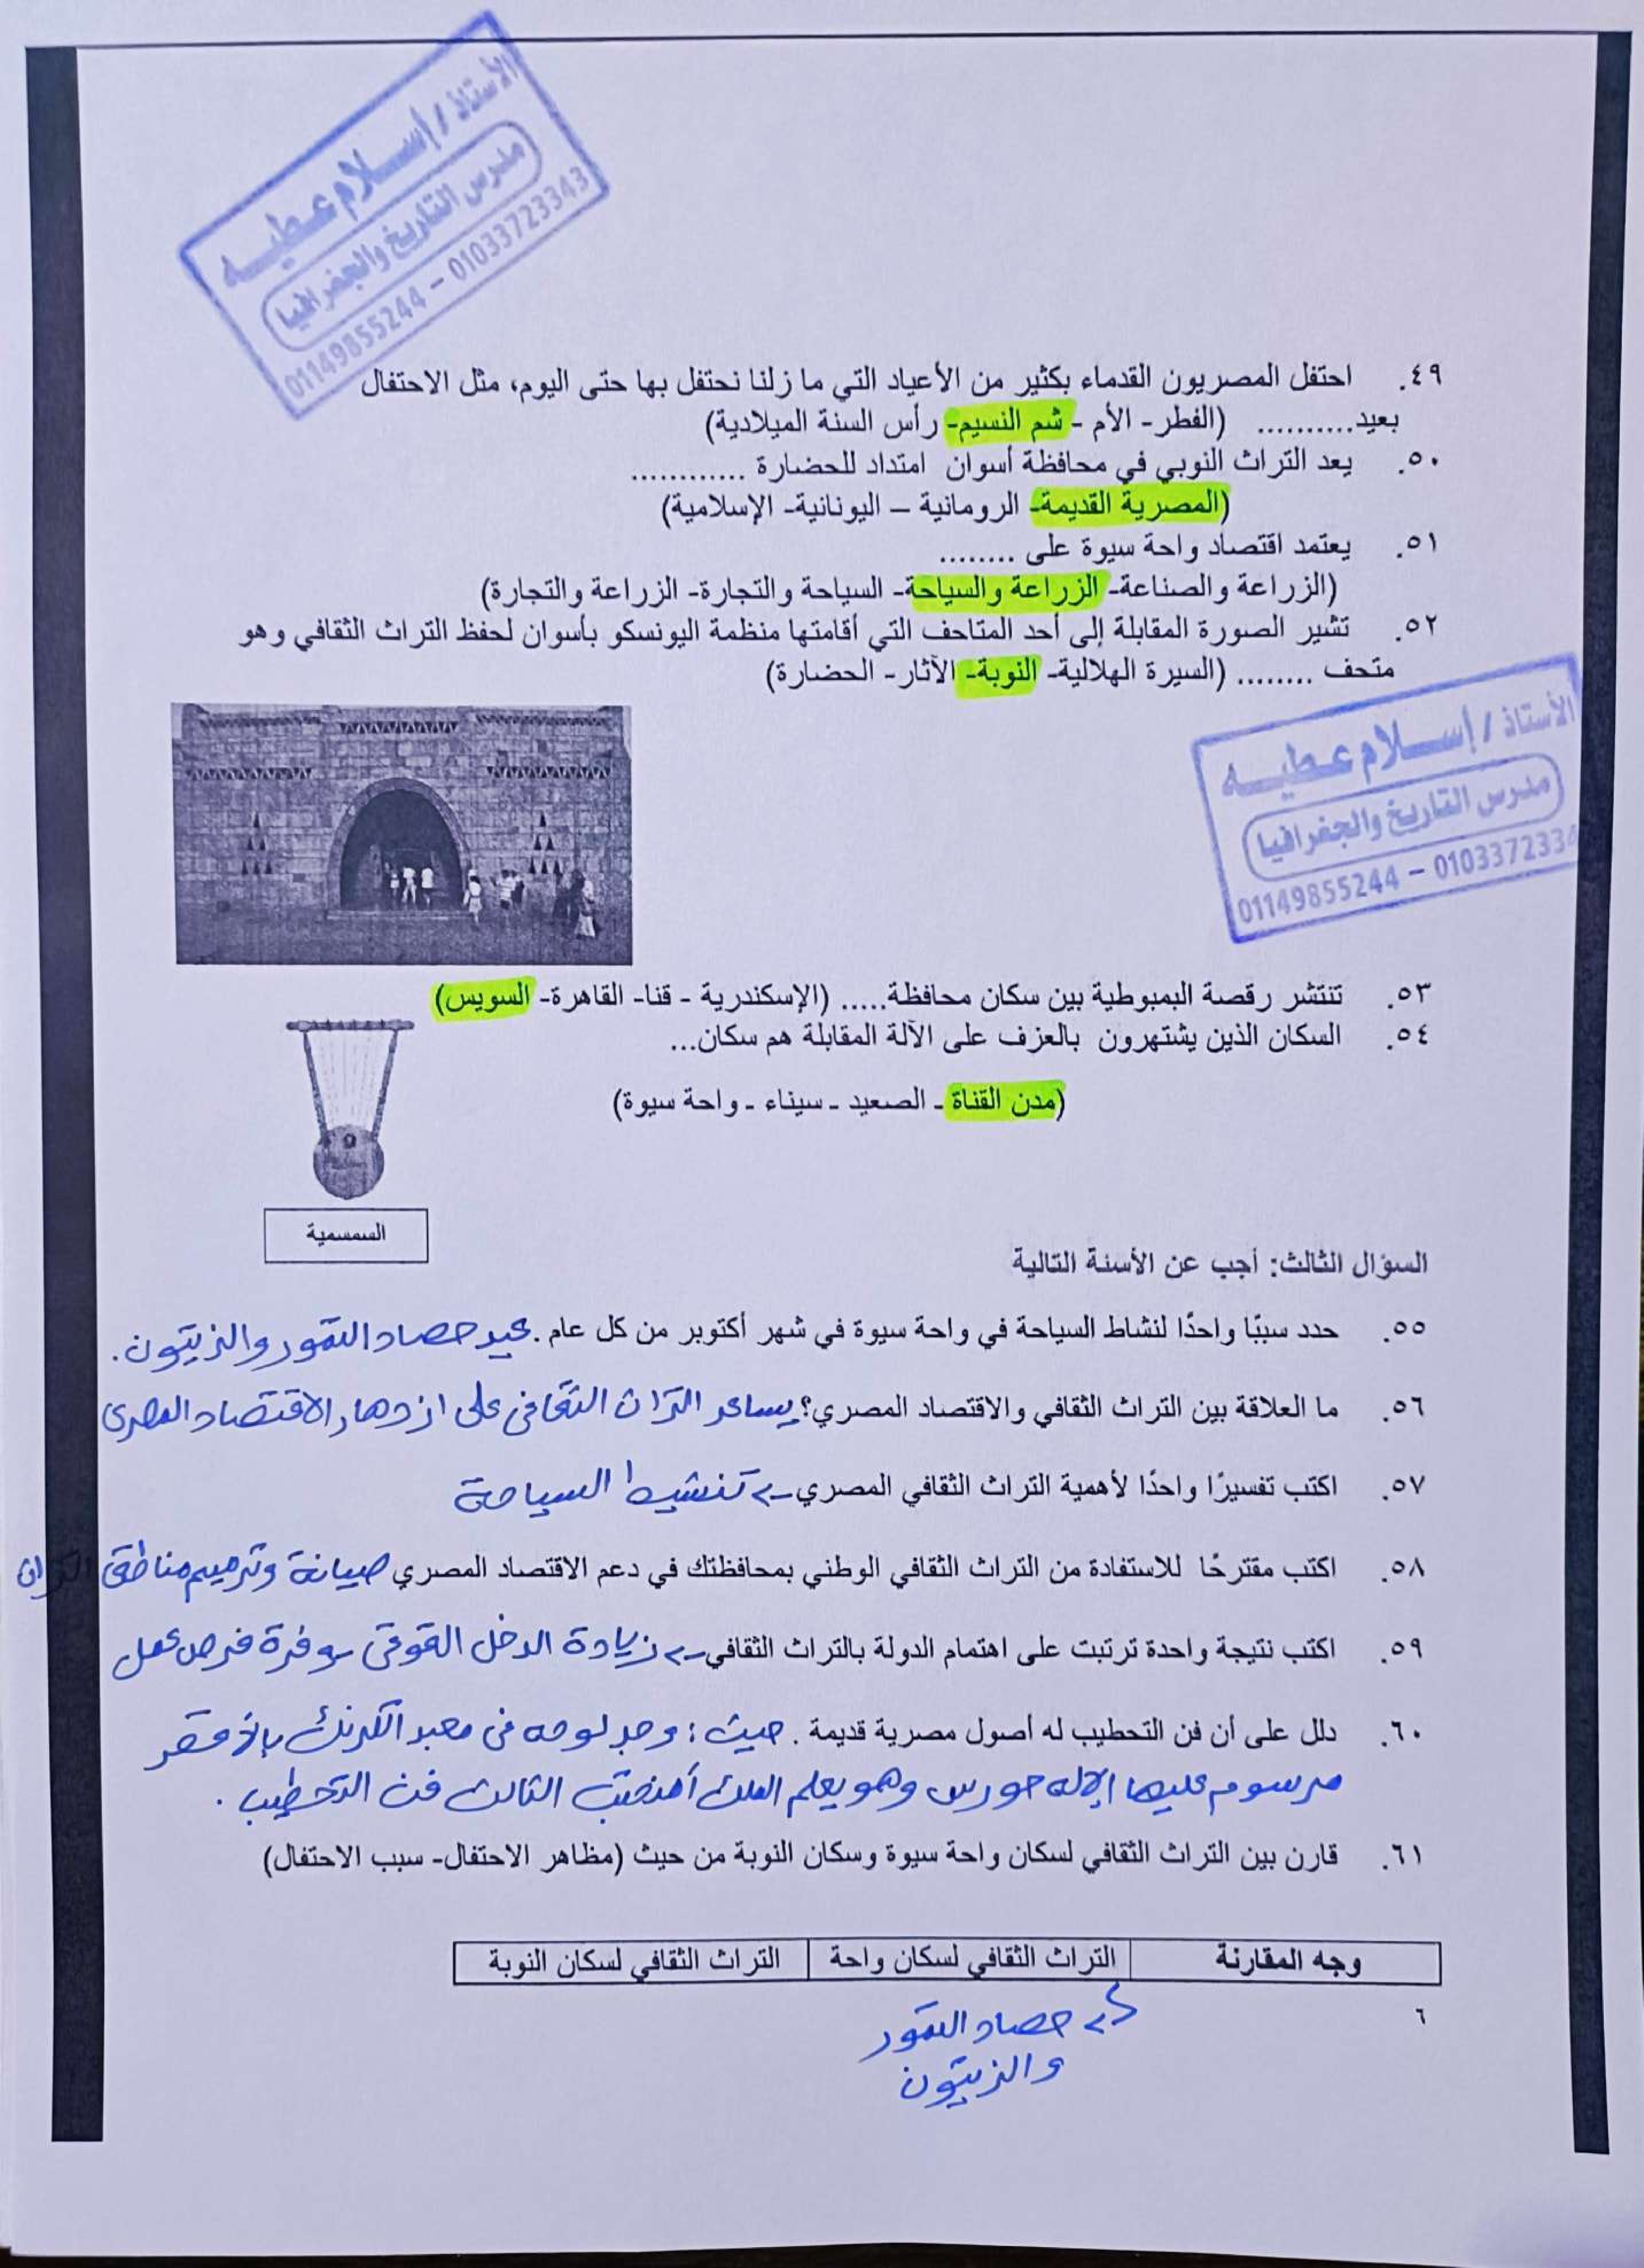 الأستاذ / إسلام عطيه
مدرس التاريخ والجغرافيا
01149855244 – 01033723343
٤٩. احتفل المصريون القدماء بكثير من الأعياد التي ما زلنا نحتفل بها حتى اليوم، مثل الاحتفال
بعيد.......... (الفطر- الأم - شم النسيم- رأس السنة الميلادية)
٥٠. يعد التراث النوبي في محافظة أسوان امتداد للحضارة ............
(المصرية القديمة- الرومانية – اليونانية- الإسلامية)
٥١. يعتمد اقتصاد واحة سيوة على ........
(الزراعة والصناعة- الزراعة والسياحة- السياحة والتجارة- الزراعة والتجارة)
٥٢. تشير الصورة المقابلة إلى أحد المتاحف التي أقامتها منظمة اليونسكو بأسوان لحفظ التراث الثقافي وهو
متحف ........ (السيرة الهلالية- النوبة- الآثار- الحضارة)
الأستاذ / إسلام عطيه
مدرس التاريخ والجغرافيا
01149855244 – 0103372334
٥٣. تنتشر رقصة البمبوطية بين سكان محافظة..... (الإسكندرية - قنا- القاهرة- السويس)
٥٤. السكان الذين يشتهرون بالعزف على الآلة المقابلة هم سكان...
(مدن القناة - الصعيد - سيناء - واحة سيوة)
السمسمية
السؤال الثالث: أجب عن الأسئلة التالية
٥٥. حدد سببًا واحدًا لنشاط السياحة في واحة سيوة في شهر أكتوبر من كل عام . عيد حصاد التمور والزيتون.
٥٦. ما العلاقة بين التراث الثقافي والاقتصاد المصري؟ يساعد التراث الثقافى على ازدهار الاقتصاد المصرى
٥٧. اكتب تفسيرًا واحدًا لأهمية التراث الثقافي المصري -> تنشيط السياحة
٥٨. اكتب مقترحًا للاستفادة من التراث الثقافي الوطني بمحافظتك في دعم الاقتصاد المصري صيانة وترميم مناطق التراث
٥٩. اكتب نتيجة واحدة ترتبت على اهتمام الدولة بالتراث الثقافي -> زيادة الدخل القومى وفرة فرص عمل
٦٠. دلل على أن فن التحطيب له أصول مصرية قديمة . حيث : وجد لوحه فى معبد الكرنك بالأقصر
مرسوم عليها الإله حورس وهو يعلم الملك أمنحتب الثالث فن التحطيب .
٦١. قارن بين التراث الثقافي لسكان واحة سيوة وسكان النوبة من حيث (مظاهر الاحتفال- سبب الاحتفال)
وجه المقارنة | التراث الثقافي لسكان واحة | التراث الثقافي لسكان النوبة
٦
حصاد التمور
والزيتون